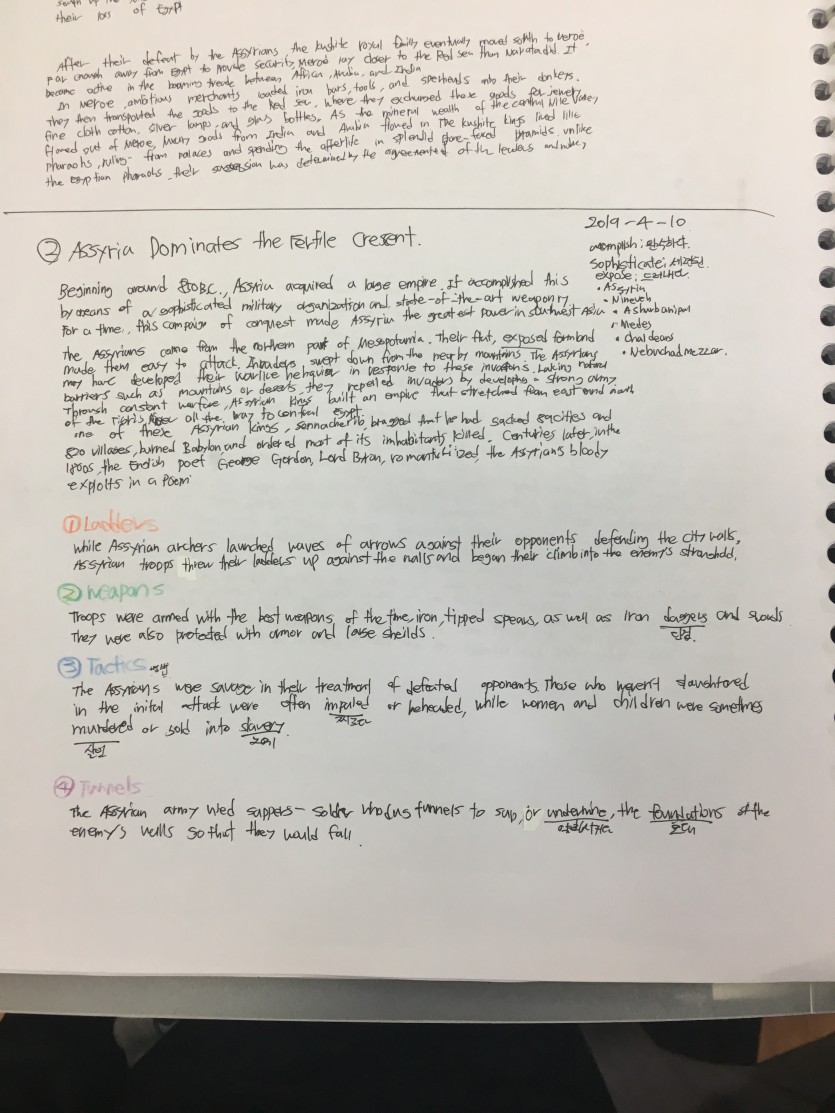 their loss of Egypt
After their defeat by the Assyrians, the kushite royal family eventually moved south to Meroë.
Far enough away from Egypt to provide security, Meroë lay closer to the Red sea than Napata did. It
became active in the booming trade between Africa, Arabia, and India
In Meroe, ambitious merchants loaded iron bars, tools, and spearheads onto their donkeys.
They then transported the goods to the Red sea, where they exchanged these goods for jewelry,
fine cloth cotton, silver lamps, and glass bottles, As the mineral wealth of the central Nile Valley
flowed out of Meroe, luxury goods from India and Arabia flowed in The kushite kings lived like
pharaohs, ruling from palaces and spending the afterlife in splendid pyramids. unlike
the Egyptian pharaohs, their succession was determined by the agreement of the leaders and
② Assyria Dominates the Fertile Cresent.
2019-4-10
accomplish:
sophisticate: 세련된
expose: 드러내다
• Assyria
• Nineveh
• Ashurbanipal
• Medes
• Chaldeans
• Nebuchadnezzar.
Beginning around 850BC., Assyria acquired a large empire. It accomplished this
by means of a sophisticated military organization and state-of-the-art weaponry
For a time, this campaign of conquest made Assyria the greatest power in southwest Asia
The Assyrians came from the northern part of Mesopotamia. Their flat, exposed farmland
made them easy to attack, Invaders swept down from the nearby mountains. The Assyrians
may have developed their warlike behavior in response to these invasions. Laking natural
barriers such as mountains or deserts, they repelled invaders by developing a strong army
Through constant warfare, Assyrian kings built an empire that stretched from east and north
of the Tigris River all the way to central Egypt.
one of these Assyrian kings, sennacherib, bragged that he had sacked 89 cities and
820 villages, burned Babylon and ordered most of its inhabitants killed. Centuries later, in the
1800s, the English poet George Gordon, Lord Byron, romanticized the Assyrians bloody
exploits in a poem
① Ladders
while Assyrian archers launched waves of arrows against their opponents defending the city walls,
Assyrian troops threw their ladders up against the walls and began their climb into the enemy's stronghold.
② weapons
Troops were armed with the best weapons of the time, iron, tipped spears, as well as iron daggers and swords
They were also protected with armor and large sheilds.
단검.
③ Tactics
The Assyrians were savage in their treatment of defeated opponents. Those who weren't slaughtered
in the initial attack were often impaled or beheaded, while women and children were sometimes
찌르다
murdered or sold into slavery.
살인 노예
④ Tunnels
The Assyrian army used sappers - soldier who dug tunnels to sap, or undermine, the foundations of the
토대
enemy's walls so that they would fall.